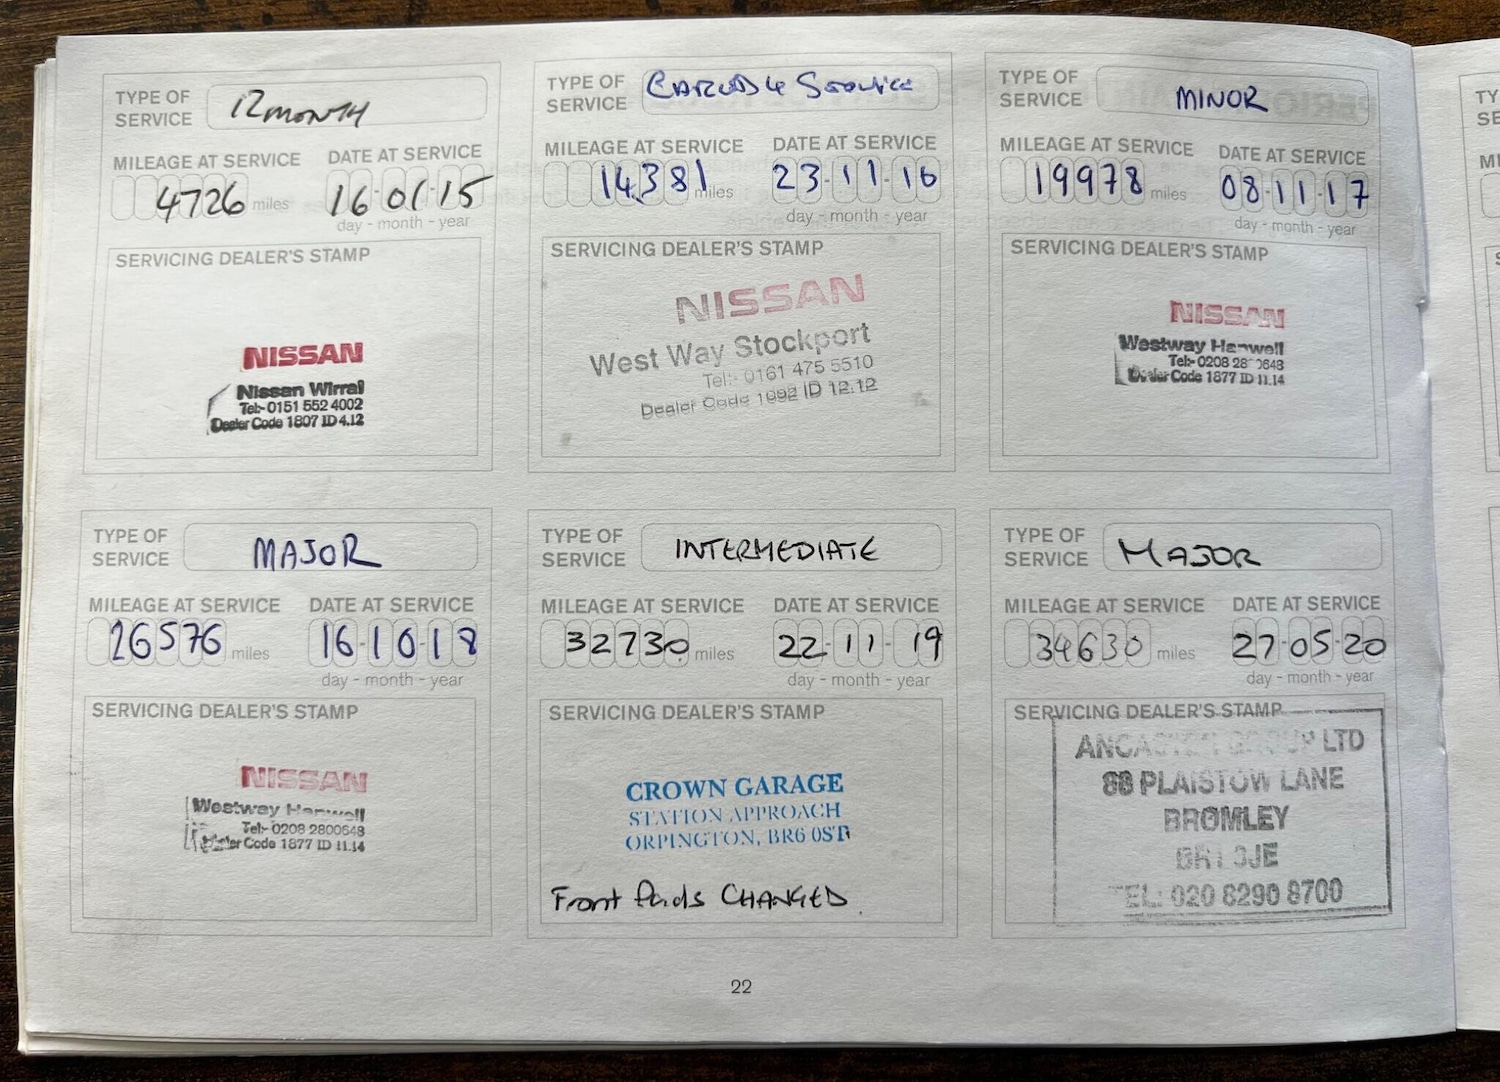 TYPE OF
SERVICE
12 MONTH
MILEAGE AT SERVICE
4726 miles
DATE AT SERVICE
16-01-15
day - month - year
SERVICING DEALER'S STAMP
NISSAN
Nissan Wirral
Tel:- 0151 552 4002
Dealer Code 1807 ID 4.12
TYPE OF
SERVICE
Service
MILEAGE AT SERVICE
14,381 miles
DATE AT SERVICE
23-11-16
day - month - year
SERVICING DEALER'S STAMP
NISSAN
West Way Stockport
Tel:- 0161 475 5510
Dealer Code 1092 ID 12.12
TYPE OF
SERVICE
MINOR
MILEAGE AT SERVICE
19978 miles
DATE AT SERVICE
08-11-17
day - month - year
SERVICING DEALER'S STAMP
NISSAN
Westway Hanwell
Tel:- 0208
Dealer Code 1877 ID 11.14
TYPE OF
SERVICE
MAJOR
MILEAGE AT SERVICE
26576 miles
DATE AT SERVICE
16-10-18
day - month - year
SERVICING DEALER'S STAMP
NISSAN
Westway Hanwell
Tel:- 0208 2800648
Dealer Code 1877 ID 11.14
TYPE OF
SERVICE
INTERMEDIATE
MILEAGE AT SERVICE
32730 miles
DATE AT SERVICE
22-11-19
day - month - year
SERVICING DEALER'S STAMP
CROWN GARAGE
STATION APPROACH
ORPINGTON, BR6 0ST
Front Pads CHANGED
TYPE OF
SERVICE
MAJOR
MILEAGE AT SERVICE
34630 miles
DATE AT SERVICE
27-05-20
day - month - year
SERVICING DEALER'S STAMP
ANCASTER GROUP LTD
88 PLAISTOW LANE
BROMLEY
BR1 3JE
TEL: 020 8290 8700
22